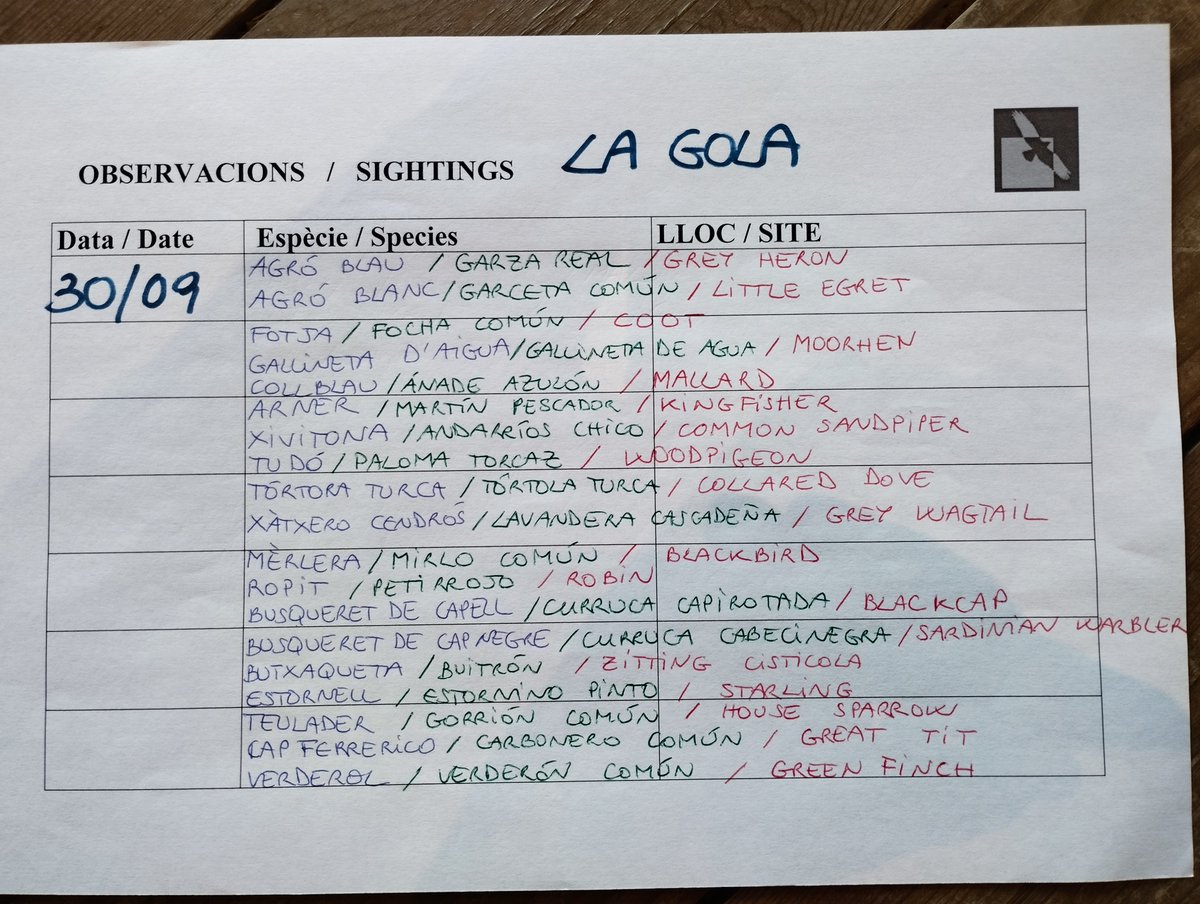 LA GOLA
OBSERVACIONS / SIGHTINGS
Data / Date Espècie / Species LLOC / SITE
30/09
AGRÓ BLAU / GARZA REAL / GREY HERON
AGRÓ BLANC / GARCETA COMÚN / LITTLE EGRET
FOTJA / FOCHA COMÚN / COOT
GALLINETA D'AIGUA / GALLINETA DE AGUA / MOORHEN
COLL BLAU / ÁNADE AZULÓN / MALLARD
ARNER / MARTÍN PESCADOR / KINGFISHER
XIVITONA / ANDARRÍOS CHICO / COMMON SANDPIPER
TUDÓ / PALOMA TORCAZ / WOODPIGEON
TÓRTORA TURCA / TÓRTOLA TURCA / COLLARED DOVE
XÀTXERO CENDRÓS / LAVANDERA CASCADEÑA / GREY WAGTAIL
MÈRLERA / MIRLO COMÚN / BLACKBIRD
ROPIT / PETIRROJO / ROBIN
BUSQUERET DE CAPELL / CURRUCA CAPIROTADA / BLACKCAP
BUSQUERET DE CAPNEGRE / CURRUCA CABECINEGRA / SARDINIAN WARBLER
BUTXAQUETA / BUITRÓN / ZITTING CISTICOLA
ESTORNELL / ESTORNINO PINTO / STARLING
TEULADER / GORRIÓN COMÚN / HOUSE SPARROW
CAP FERRERICO / CARBONERO COMÚN / GREAT TIT
VERDEROL / VERDERÓN COMÚN / GREEN FINCH